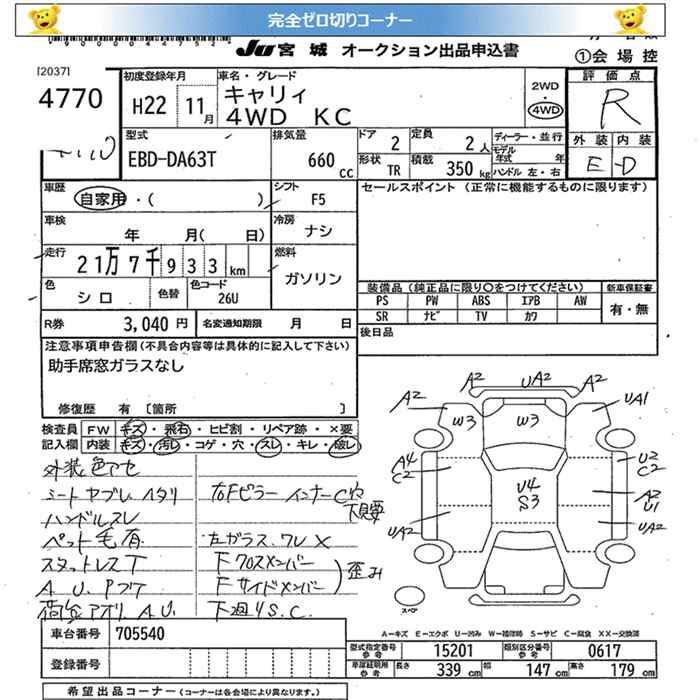 完全ゼロ切りコーナー
JU 宮城 オークション出品申込書
①会場控
[2037]
4770
初度登録年月
H22 11月
車名・グレード
キャリィ
4WD KC
2WD
・
4WD
評価点
R
型式
EBD-DA63T
排気量
660 CC
ドア 2
定員 2人
形状 TR
積載 350kg
ディーラー・並行
モデル年式 年
ハンドル 左・右
外装 内装
E D
車歴
自家用・( )
シフト
F5
セールスポイント (正常に機能するものに限ります)
車検
年 月( 日)
冷房
ナシ
走行
21万7千933km
燃料
ガソリン
色
シロ
色替
色コード
26U
装備品 (純正品に限り○をつけてください)
新車保証書
PS PW ABS エアB AW
SR ナビ TV カワ
有・無
R券 3,040円
名変通知期限 月 日
後日品
注意事項申告欄 (不具合内容等は具体的に記入して下さい)
助手席窓ガラスなし
修復歴 有 [箇所 ]
検査員 FW キズ・飛石・ヒビ割・リペア跡・×要
記入欄 内装 キズ・汚レ・コゲ・穴・スレ・キレ・破レ
外装色アセ
シートヤブレ・ヘタリ 右Fピラーインナー C穴
下見要
ハンドルスレ
ペット毛有 左ガラス ワレ X
スタットレスT Fクロスメンバー
A.U.Pブケ Fサイドメンバー
歪み
荷台アオリ A.U. 下廻りS.C.
A2 UA2 A2
A2 W3 W3 UA1
A4 C2 U2 C2
U4 S3
A2 U1
UA2 UA2
スペア
A-キズ E-エクボ U-凹み W-補修跡 S-サビ C-腐食 XX-交換済
車台番号 705540
登録番号
型式指定番号 参考 15201
類別区分番号 参考 0617
車庫証明用 参考 長さ 339cm 幅 147cm 高さ 179cm
希望出品コーナー (コーナーは各会場により異なります。)